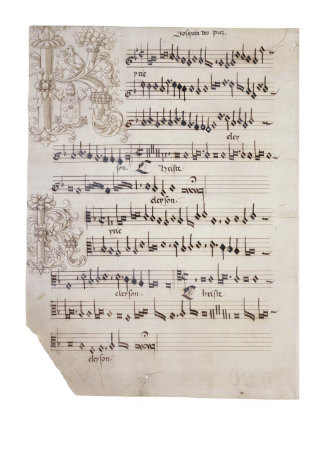 Josquin des prez.
Kyrie
eley
son. Christe
eleyson.
Kyrie
eleyson. Christe
eleyson.